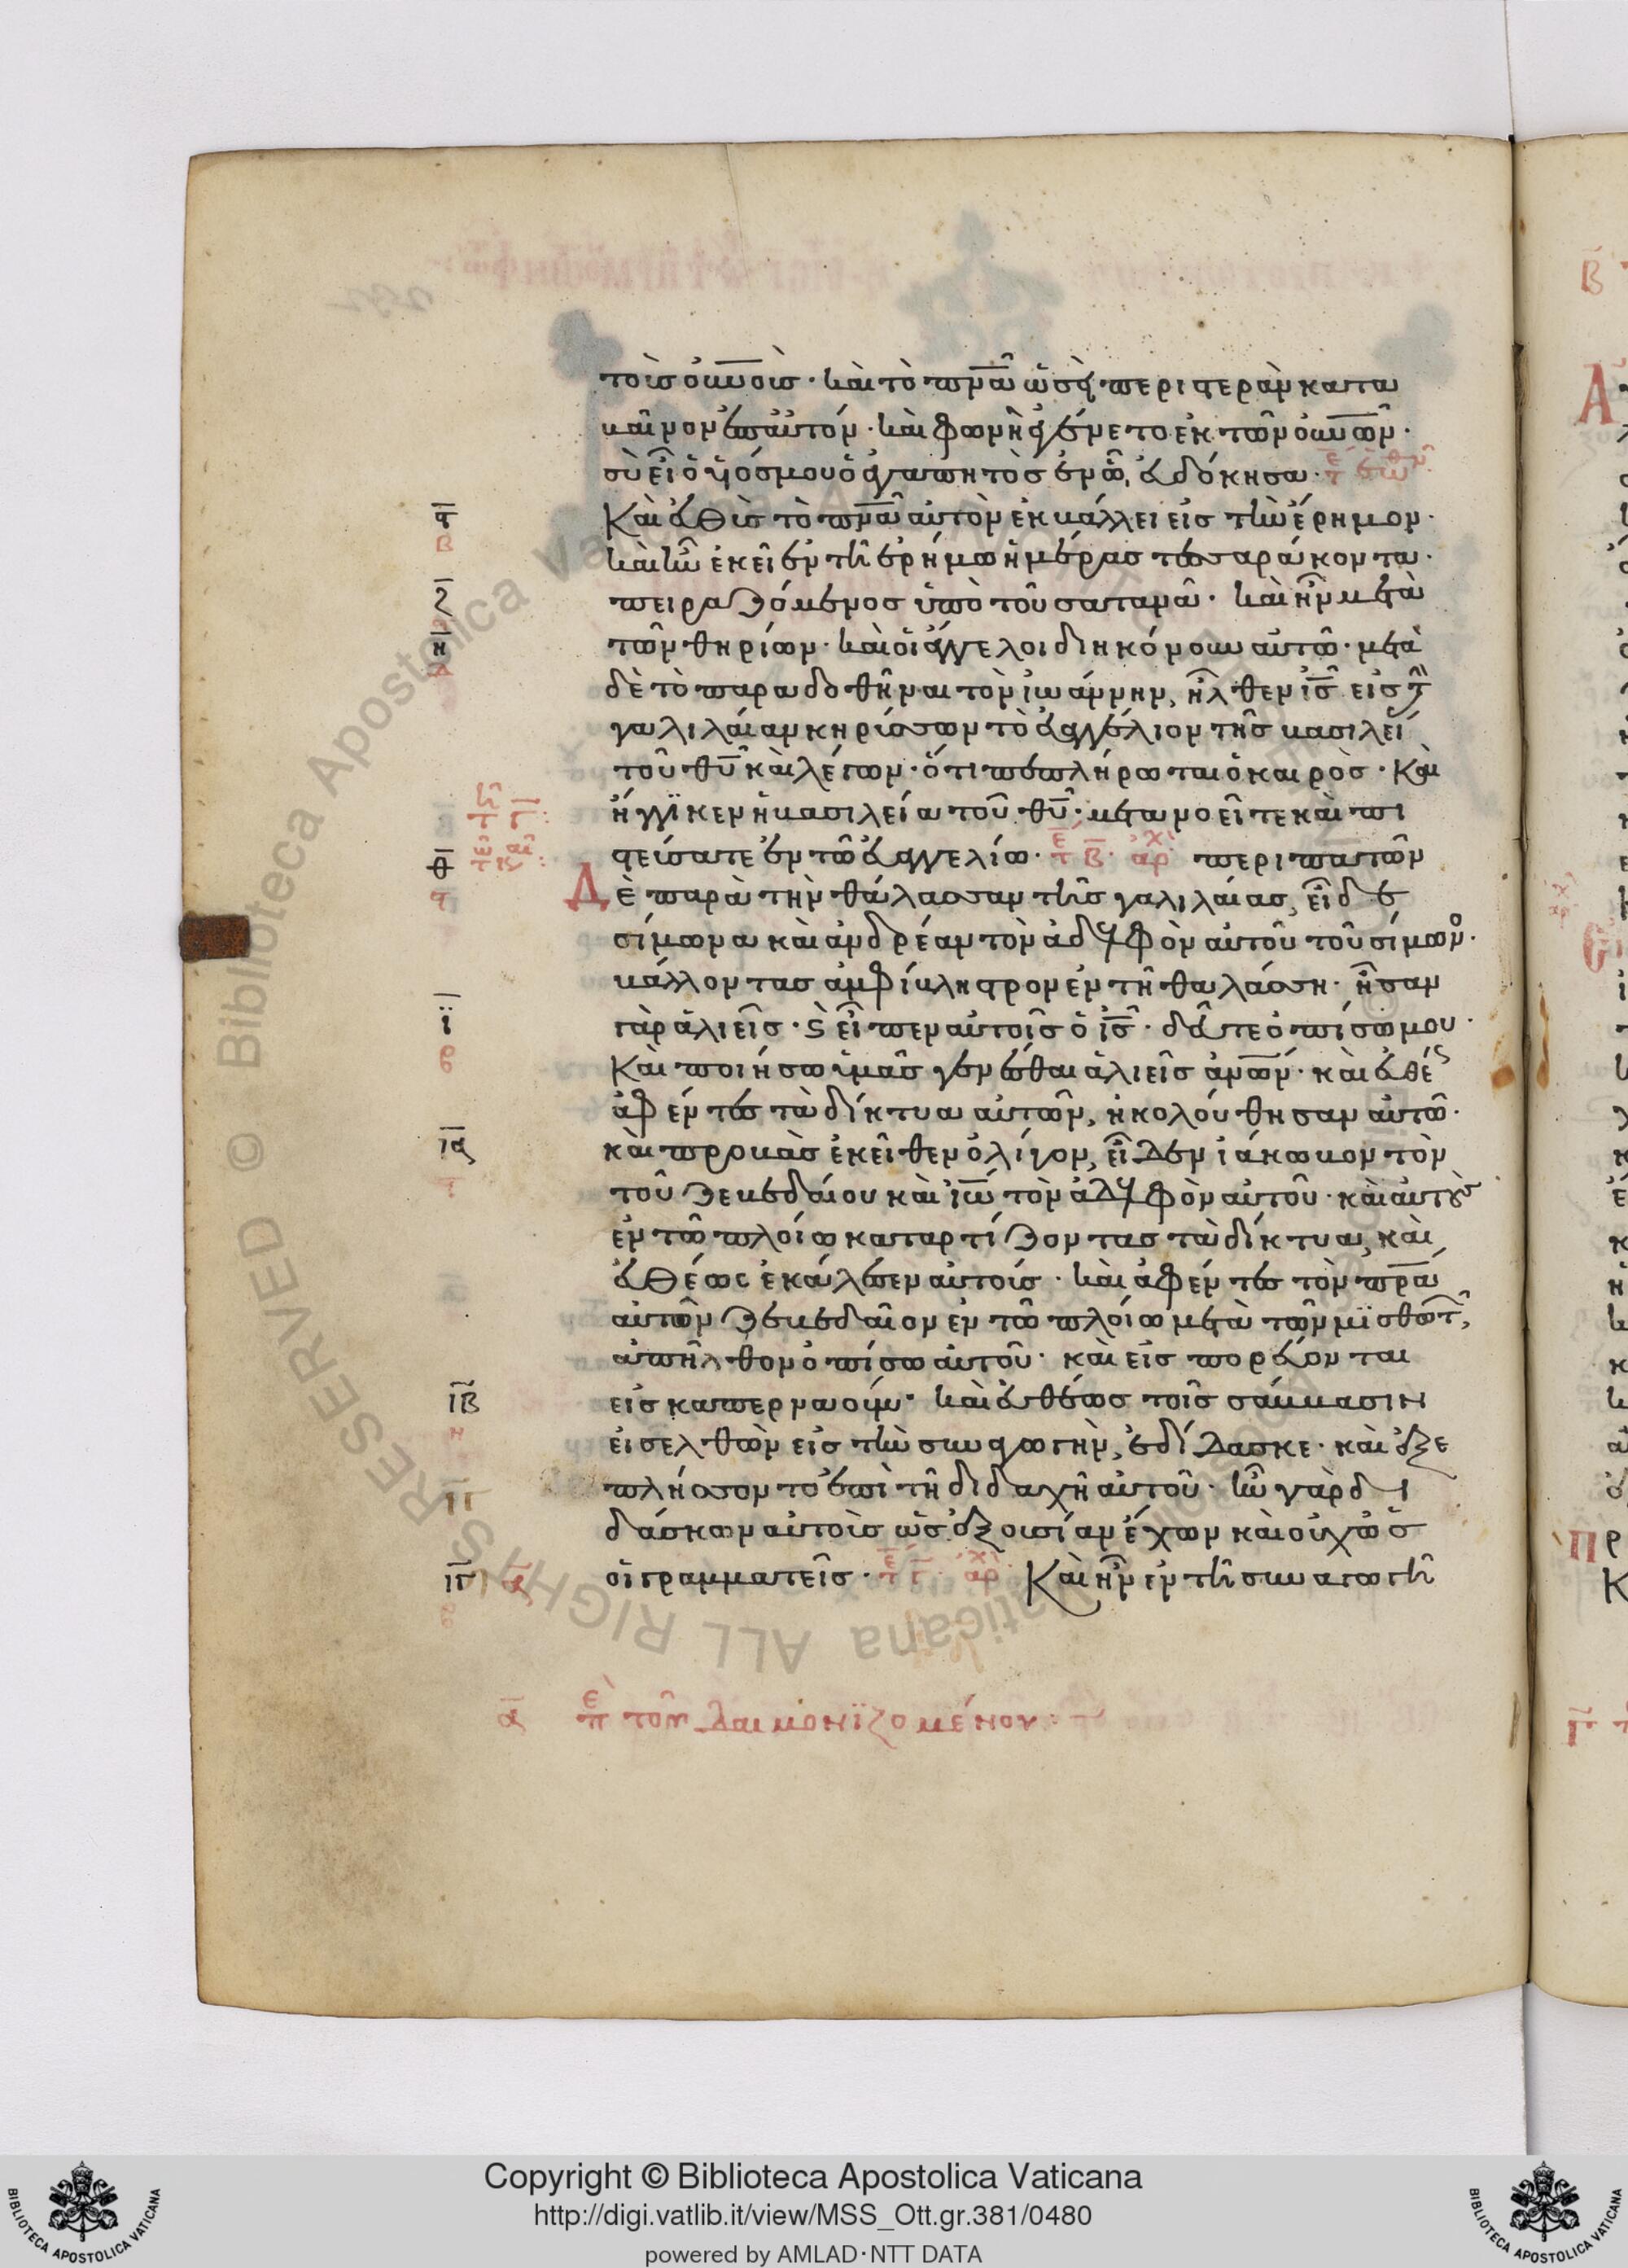 τοὺς οὐνοὺς· καὶ τὸ πνᾶ ὡσεὶ περιστερὰν κατα
βαῖνον ἐπ' αὐτόν· καὶ φωνὴ ἐγένετο ἐκ τῶν οὐνῶν·
σὺ εἶ ὁ υἱός μου ὁ ἀγαπητὸς ἐν ᾧ εὐδόκησα·
Καὶ εὐθὺς τὸ πνᾶ αὐτὸν ἐκβάλλει εἰς τὴν ἔρημον·
καὶ ἦν ἐκεῖ ἐν τῆ ἐρήμω ἡμέρας τεσσαράκοντα·
πειραζόμενος ὑπὸ τοῦ σατανᾶ· καὶ ἦν μετὰ
τῶν θηρίων· καὶ οἱ ἄγγελοι διηκόνουν αὐτῶ· μετὰ
δὲ τὸ παραδοθῆναι τὸν ἰωάννην, ἦλθεν ἰς εἰς τὴν
γαλιλαίαν κηρύσσων τὸ εὐαγγέλιον τῆς βασιλεί
τοῦ θυ καὶ λέγων· ὅτι πεπλήρωται ὁ καιρὸς· Καὶ
ἤγγϊκεν ἡ βασιλεία τοῦ θυ· μετανοεῖτε καὶ πι
στεύσατε ἐν τῶ εὐαγγελίω· τε β· ἀρχ περιπατῶν
Δὲ παρὰ τὴν θάλασσαν τῆς γαλιλαίας, εἶδε
σίμωνα καὶ ἀνδρέαν τὸν ἀδελφὸν αὐτοῦ τοῦ σίμωνο·
βάλλοντας ἀμφίβληστρον ἐν τῆ θαλάσση· ἦσαν
γὰρ ἁλιεῖς· ϛ εἶπεν αὐτοῖς ὁ ἰς· δεῦτε ὀπίσω μου·
Καὶ ποιήσω ὑμᾶς γενέσθαι ἁλιεῖς ἀνων· καὶ εὐθέως
ἀφέντες τὰ δίκτυα αὐτῶν, ἠκολούθησαν αὐτῶ·
καὶ προβὰς ἐκεῖθεν ὀλίγον, εἶδεν ἰάκωβον τὸν
τοῦ ζεβεδαίου καὶ ἰω τὸν ἀδελφὸν αὐτοῦ· καὶ αὐτοὺς
ἐν τῶ πλοίω καταρτίζοντας τὰ δίκτυα, καὶ
εὐθέως ἐκάλεσεν αὐτούς· καὶ ἀφέντες τὸν πρα
αὐτῶν ζεβεδαῖον ἐν τῶ πλοίω μετὰ τῶν μϊσθωτ,
ἀπῆλθον ὀπίσω αὐτοῦ· καὶ εἰσπορεύονται
εἰς καπερναούμ· καὶ εὐθέως τοῖς σάββασιν
εἰσελθὼν εἰς τὴν συναγωγὴν, ἐδίδασκε· καὶ ἐξε
πλήσσοντο ἐπὶ τῆ διδαχῆ αὐτοῦ· ἦν γὰρ δι
δάσκων αὐτοὺς ὡς ἐξουσίαν ἔχων καὶ οὐχ ὡς
οἱ γραμματεῖς· τε γ· ἀρχ Καὶ ἦν ἐν τῆ συναγωγῆ
α πε τοῦ δαιμονϊζομένου:
Copyright © Biblioteca Apostolica Vaticana
http://digi.vatlib.it/view/MSS_Ott.gr.381/0480
powered by AMLAD·NTT DATA
BIBLIOTECA APOSTOLICA VATICANA
BIBLIOTECA APOSTOLICA VATICANA